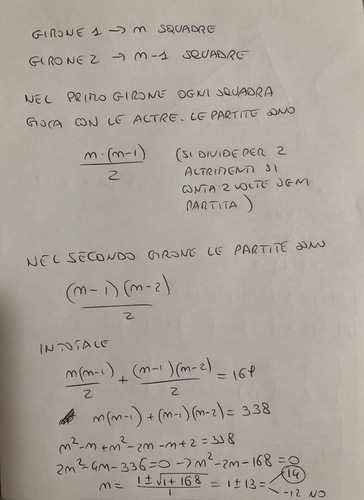 GIRONE 1 → n SQUADRE
GIRONE 2 → n-1 SQUADRE
NEL PRIMO GIRONE OGNI SQUADRA
GIOCA CON LE ALTRE. LE PARTITE SONO
n·(n-1)/2 (SI DIVIDE PER 2
ALTRIMENTI SI
CONTA 2 VOLTE OGNI
PARTITA)
NEL SECONDO GIRONE LE PARTITE SONO
(n-1)(n-2)/2
IN TOTALE
n(n-1)/2 + (n-1)(n-2)/2 = 169
n(n-1) + (n-1)(n-2) = 338
n²-n+n²-2n-n+2=338
2n²-4n-336=0 → n²-2n-168=0
n = 1±√1+168/1 = 1±13= 14
-12 NO